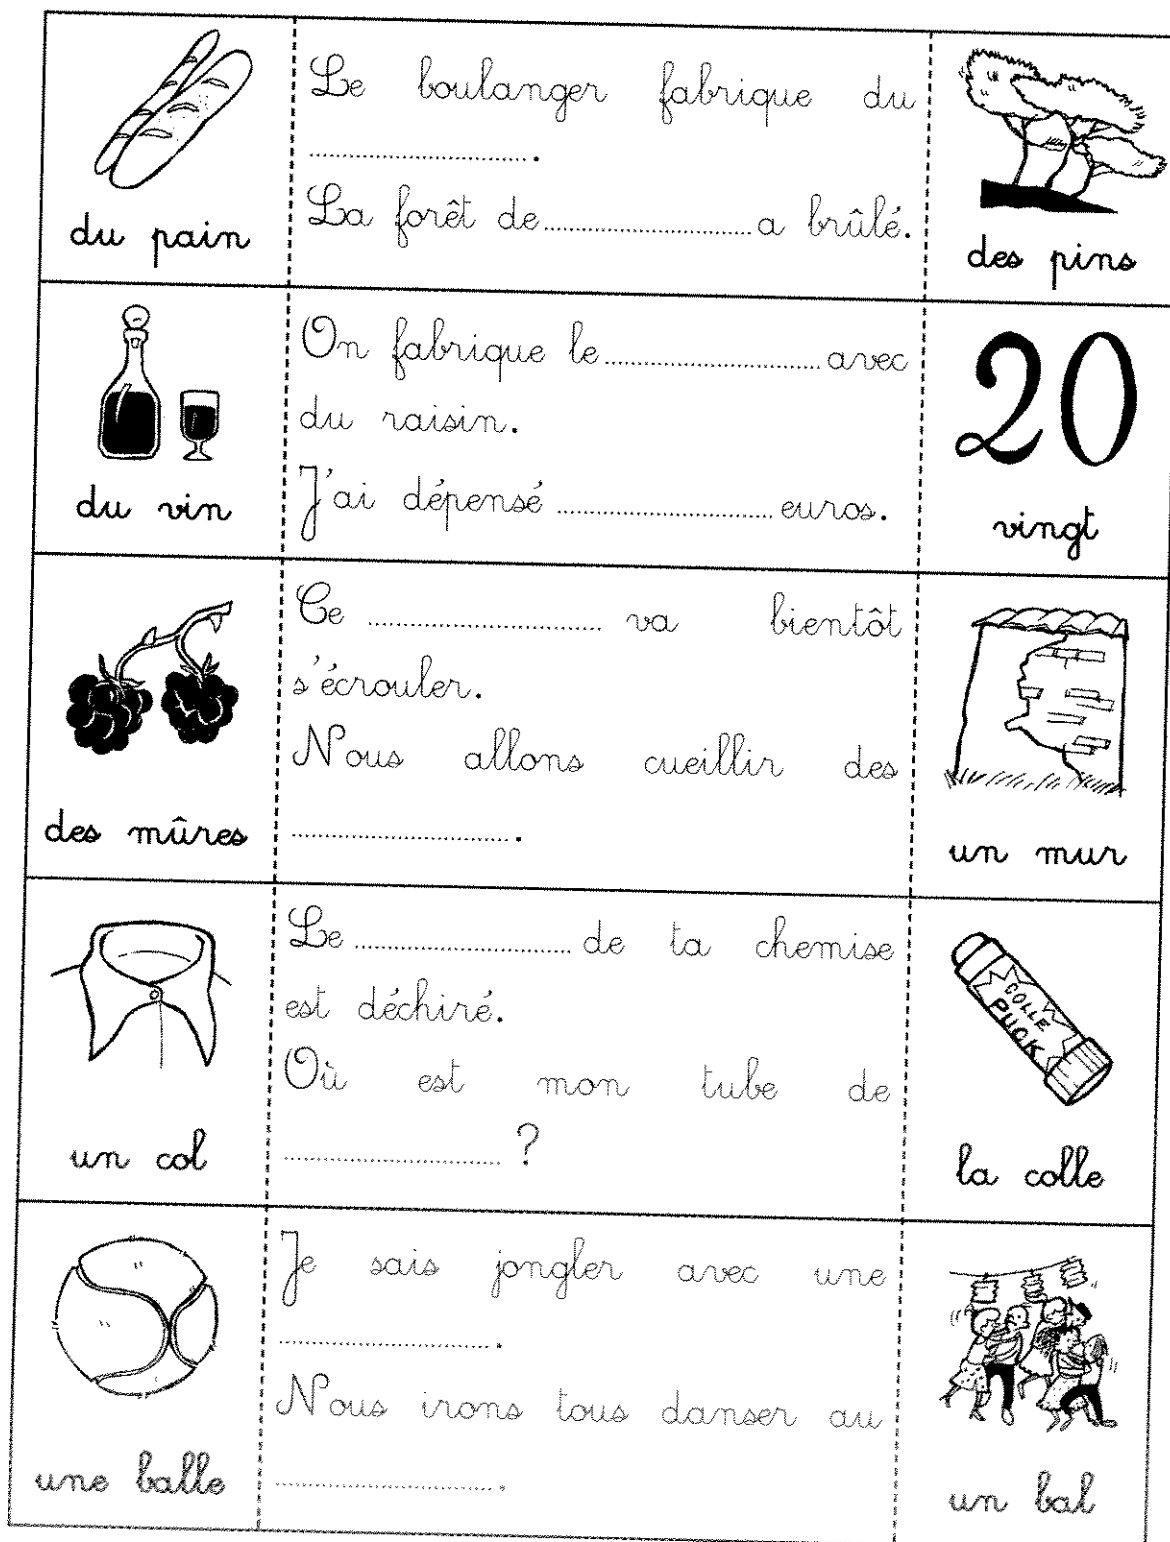 du pain
Le boulanger fabrique du
.............................. .
La forêt de .............................. a brûlé.
des pins
du vin
On fabrique le .............................. avec
du raisin.
J'ai dépensé .............................. euros.
20
vingt
des mûres
Ce .............................. va bientôt
s'écrouler.
Nous allons cueillir des
.............................. .
un mur
un col
Le .............................. de ta chemise
est déchiré.
Où est mon tube de
.............................. ?
COLLE
PUCK
la colle
une balle
Je sais jongler avec une
.............................. .
Nous irons tous danser au
.............................. .
un bal